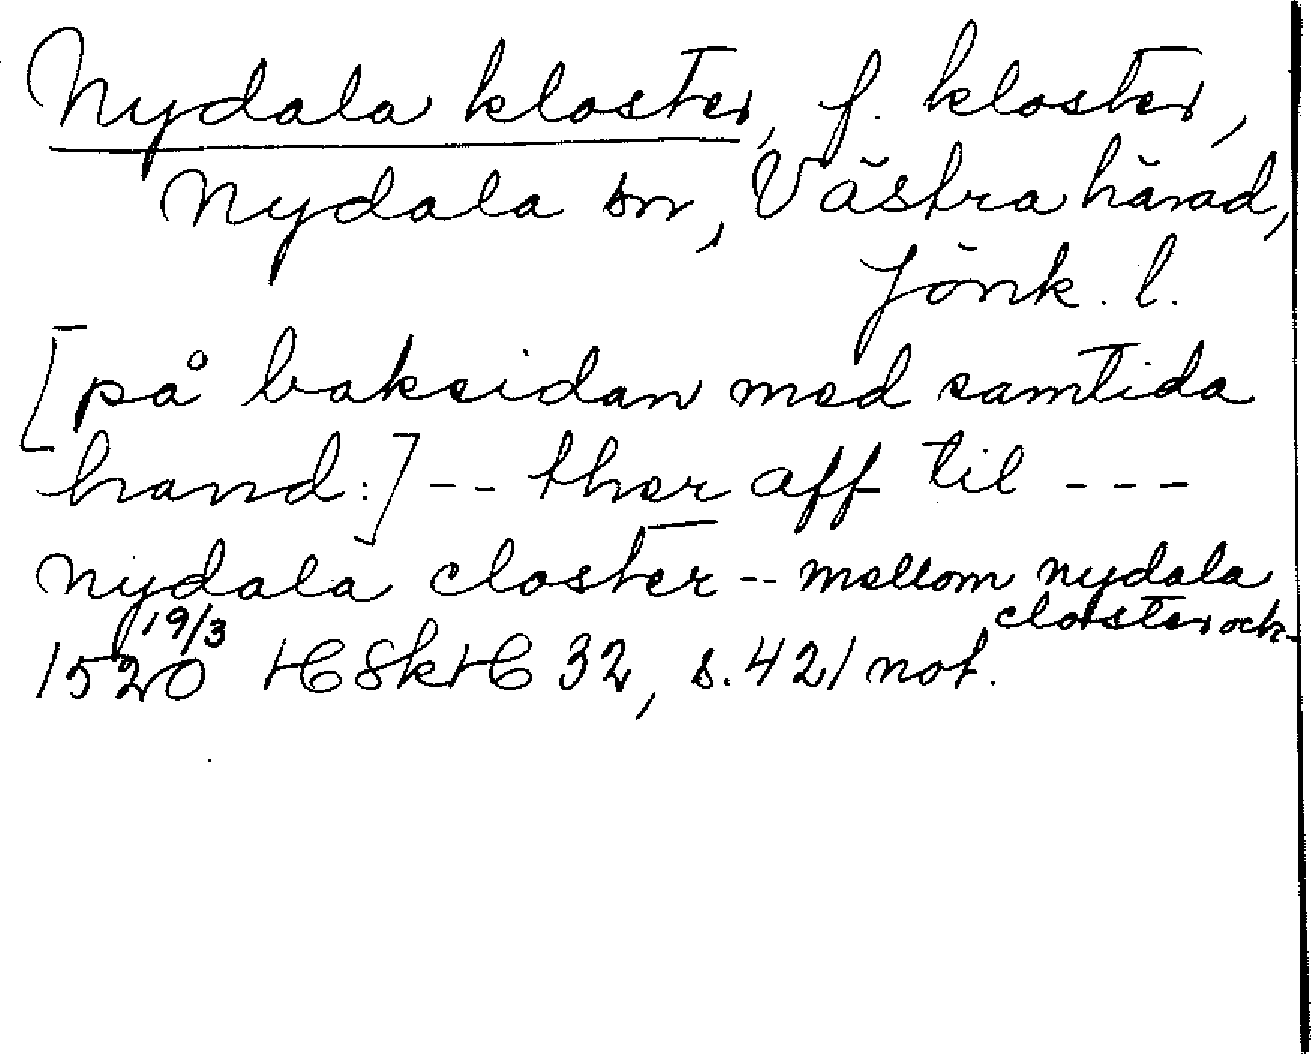 Nydala kloster, f. kloster,
Nydala sn, Västra härad,
Jönk. l.
[på baksidan med samtida
hand:] -- ther aff til ---
nydala closter -- mellom nydala
closter ock-
19/3
1520 HSkH 32, s. 421 not.